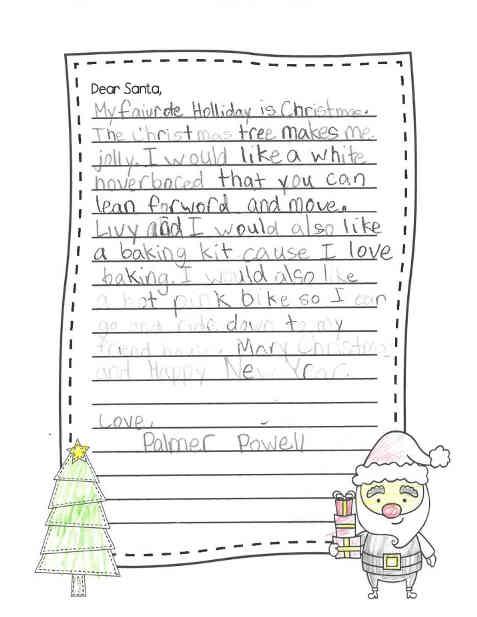 Dear Santa,
My faiurde Holliday is Christmas.
The Christmas tree makes me
jolly. I would like a white
hoverborced that you can
lean forword and move.
Livy and I would also like
a baking kit cause I love
baking. I would also like
a hot pink bike so I can
go and ride down to my
friend house. Mary Christmas
and Happy New Year.
Love,
Palmer Powell